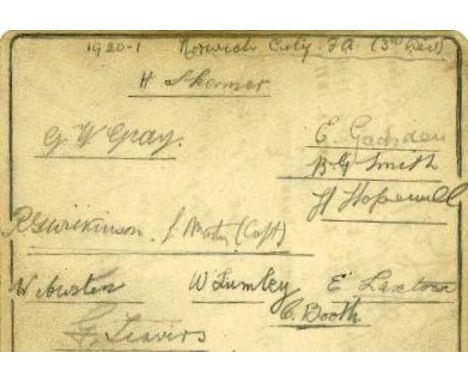 1920-1 Norwich City. F.A. (3rd Div)
H Skermer
G W Gray.
E. Gadsden
B.G Smith
H Hopewell
R G Wilkinson. J Martin (Capt)
W Lumley
E Laxton
C. Booth
F. Leavers